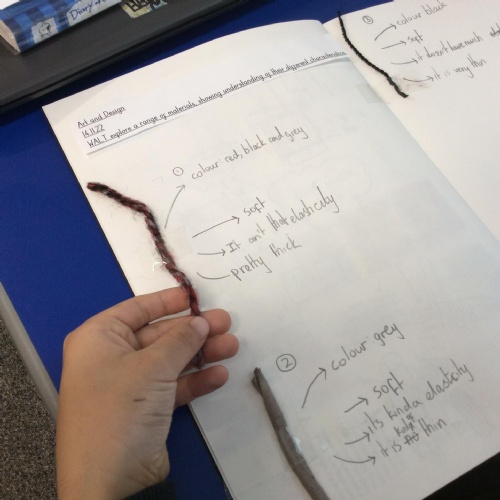 Diary of
Art and Design
14.11.22
WALT explore a range of materials, showing understanding of their different characteristics
①
colour: red, black and grey
soft
It isn't that elasticity
pretty thick
②
colour grey
soft
its kinda elasticity
kinda
it is thin
③
colour black
soft
it doesn't have much
it is very thin